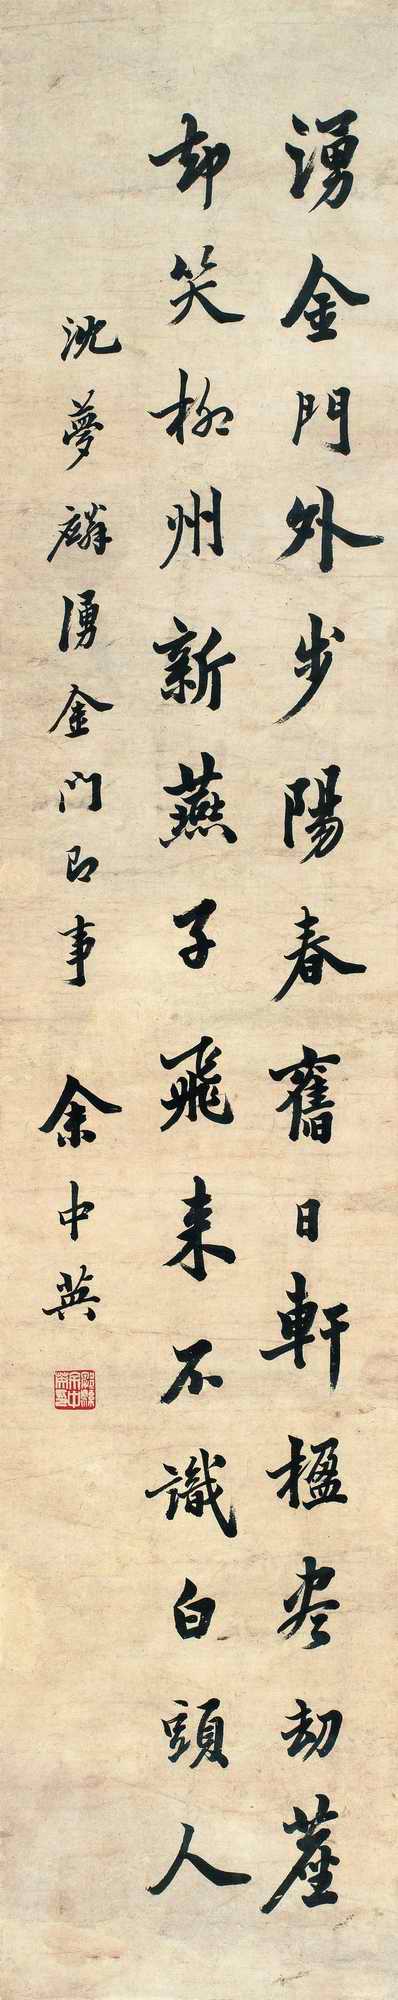 湧金門外步陽春舊日軒楹尽劫塵
却笑柳州新燕子飛来不識白頭人
沈夢麟湧金門即事 余中英